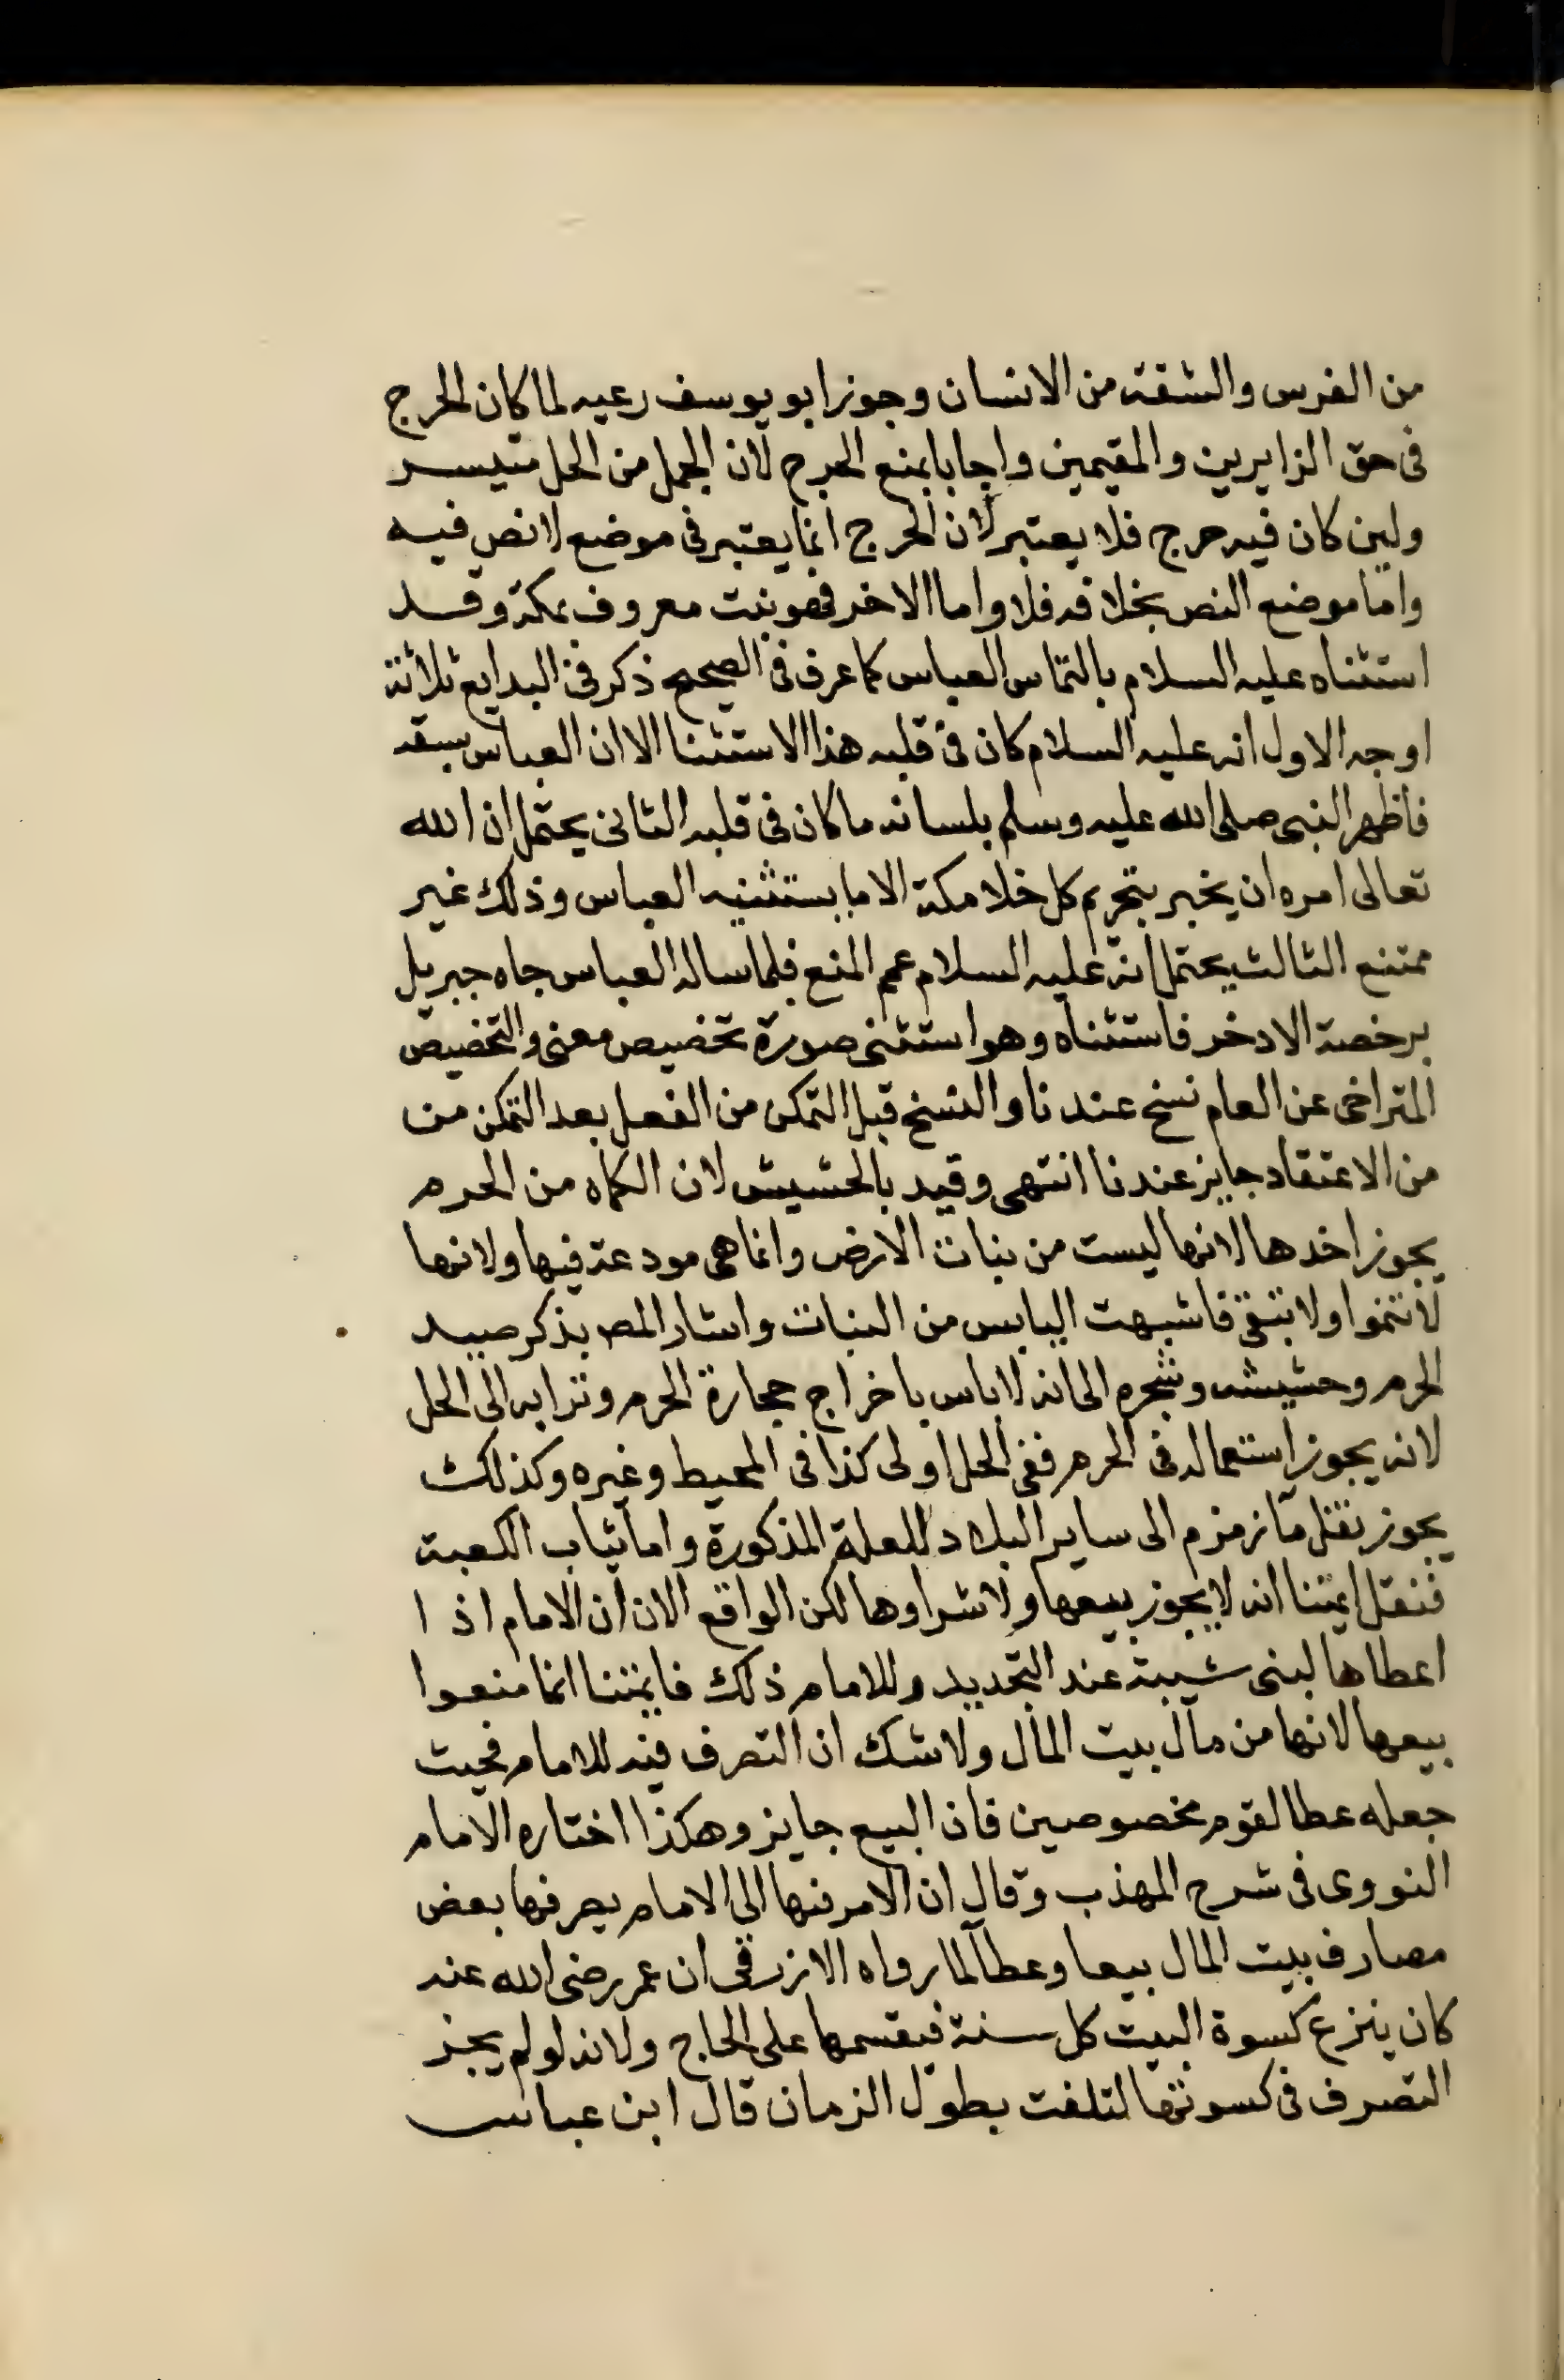 من الفرس والشفة من الانسان وجوز ابو يوسف رعيه لما كان الحرج
فى حق الزايرين والمقيمين واجابا بمنع الحرج لان الحمل من الحل متيسر
ولين كان فيه حرج فلا يعتبر لان الحرج انما يعتبر فى موضع لا نص فيه
واما موضع النص بخلافه فلا واما الاخر فهو نبت معروف بمكة وقد
استثناه عليه السلام بالتماس العباس كما عرف فى الصحيح ذكر فى البدايع ثلاثة
اوجه الاول انه عليه السلام كان فى قلبه هذا الاستثنا الا ان العباس سبقه
فاظهر النبى صلى الله عليه وسلم بلسانه ما كان فى قلبه الثانى يحتمل ان الله
تعالى امره ان يخبر بتحريم كل خلا مكة الا ما يستثنيه العباس وذلك غير
ممتنع الثالث يحتمل انه عليه السلام عمم المنع فلما ساله العباس جاه جبريل
برخصة الادخر فاستثناه وهو استثنى صورة تخصيص معنى والتخصيص
المتراخى عن العام نسخ عندنا والنسخ قبل التمكن من الفعل بعد التمكن من
من الاعتقاد جايز عندنا انتهى وقيد بالحشيش لان الكماه من الحرم
يجوز اخدها لانها ليست من نبات الارض وانما هى مودعة فيها ولانها
لا تنموا ولا تبقى فاشبهت اليابس من النبات واشار المص بذكر صيد
الحرم وحشيشه وشجره الى انه لا باس باخراج حجارة الحرم وترابه الى الحل
لانه يجوز استعماله فى الحرم ففى الحل اولى كذا فى المحيط وغيره وكذلك
يجوز نقل ما زمزم الى ساير البلاد للعلة المذكورة واما ثياب الكعبة
فنقل ايمتنا انه لا يجوز بيعها ولا شراوها لكن الواقع الان ان الامام اذا
اعطاها لبنى شيبة عند التجديد وللامام ذلك فايمتنا انما منعوا
بيعها لانها من مال بيت المال ولا شك ان التصرف فيه للامام فحيث
جعله عطا لقوم مخصوصين فان البيع جايز وهكذا اختاره الامام
النووى فى شرح المهذب وقال ان الامر فيها الى الامام يصرفها بعض
مصارف بيت المال بيعا وعطا لما رواه الازرقى ان عمر رضى الله عنه
كان ينزع كسوة البيت كل سنة فيقسمها على الحاج ولانه لو لم يجز
التصرف فى كسوتها لتلفت بطول الزمان قال ابن عباس